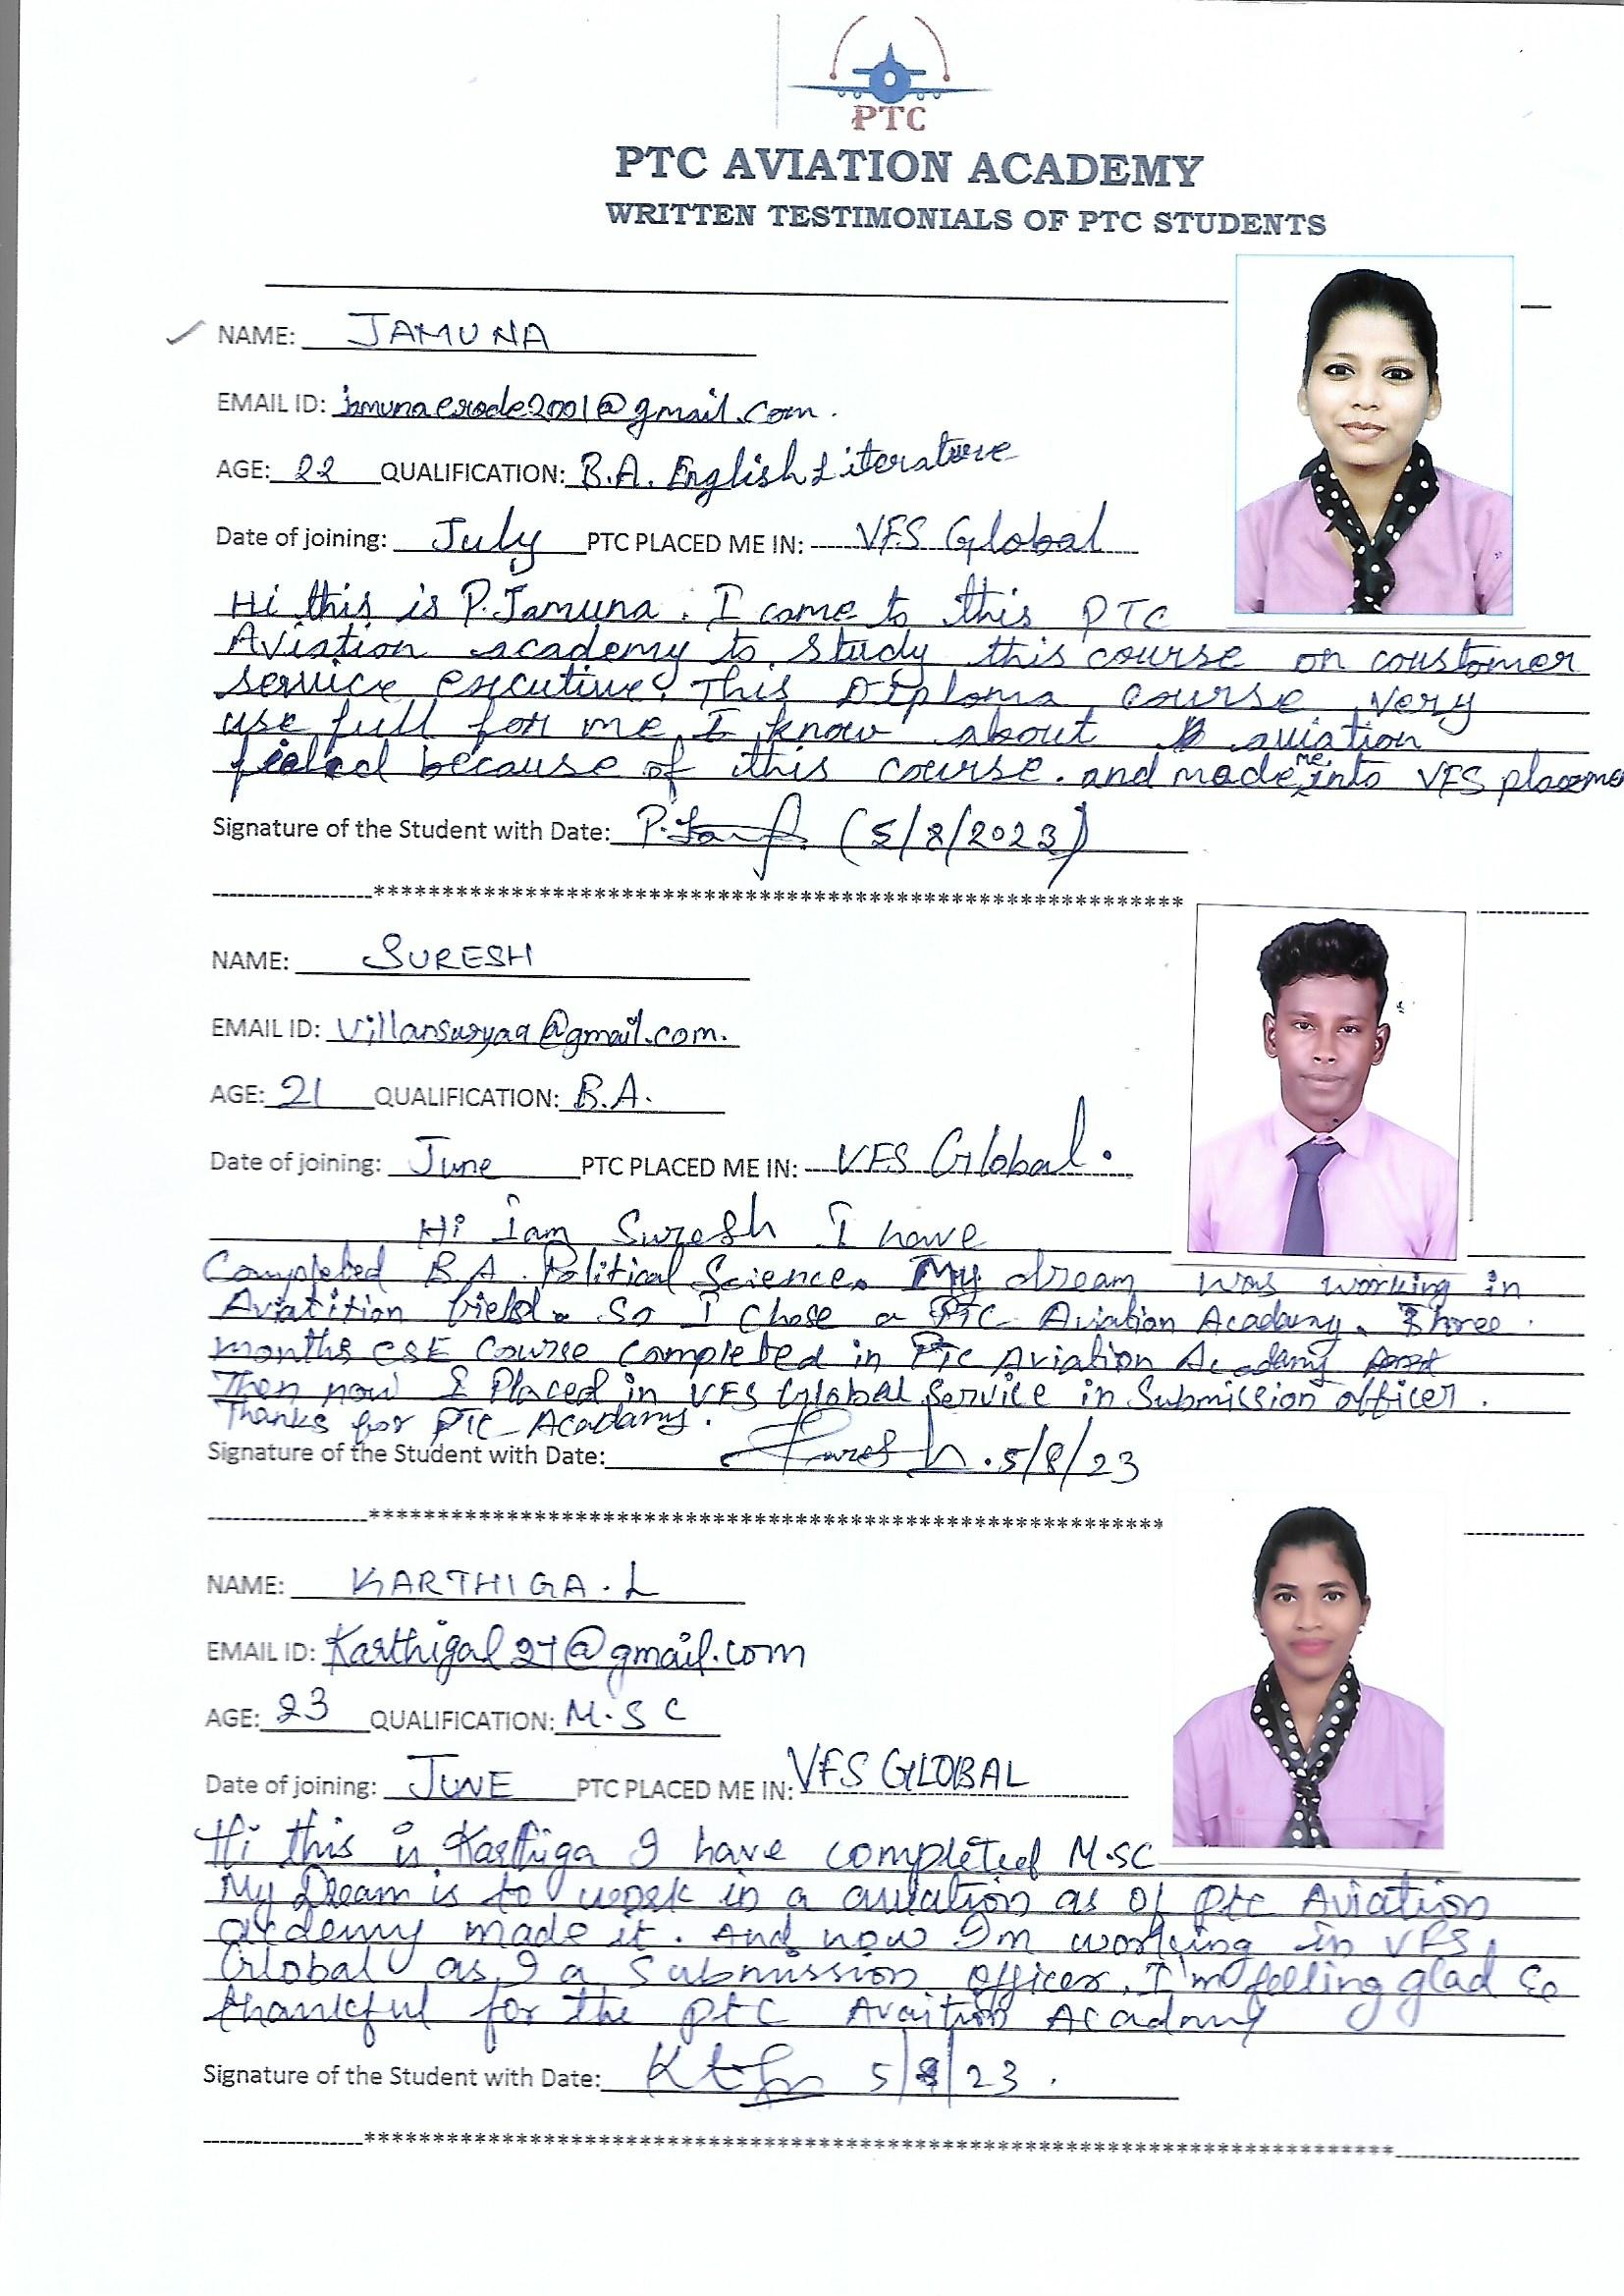 PTC
PTC AVIATION ACADEMY
WRITTEN TESTIMONIALS OF PTC STUDENTS
NAME: JAMUNA
EMAIL ID: jamunaerode2001@gmail.com.
AGE: 22 QUALIFICATION: B.A. English Literature
Date of joining: July PTC PLACED ME IN: VFS Global
Hi this is P.Jamuna. I came to this PTC
Aviation academy to study this course on coustomer
service executive. This Diploma course very
use full for me I know about aviation
because of this course. and made me into VFS placeme
Signature of the Student with Date: (5/8/2023)
***********************************************************
NAME: SURESH
EMAIL ID: Villansuryaa@gmail.com.
AGE: 21 QUALIFICATION: B.A.
Date of joining: June PTC PLACED ME IN: VFS Global.
Hi Iam Suresh I have
Completed B.A. Political Science. My dream was working in
Aviatition field. So I Chose a PTC Aviation Acadamy. Three
months CSE Course Completed in Ptc Aviation Acadamy
Then now I Placed in VFS Global Service in Submission officer.
Thanks for PTC Acadamy.
Signature of the Student with Date: 5/8/23
***********************************************************
NAME: KARTHIGA.L
EMAIL ID: Karthigal27@gmail.com
AGE: 23 QUALIFICATION: M.SC
Date of joining: JUNE PTC PLACED ME IN: VFS GLOBAL
Hi this is Karthiga I have completed M.SC
My Dream is to work in a aviation as of Ptc Aviation
academy made it. And now I'm working in VFS
Global as I a Submission officer. I'm felling glad So
thankful for the ptc Avaition Acadamy
Signature of the Student with Date: 5/8/23.
***********************************************************